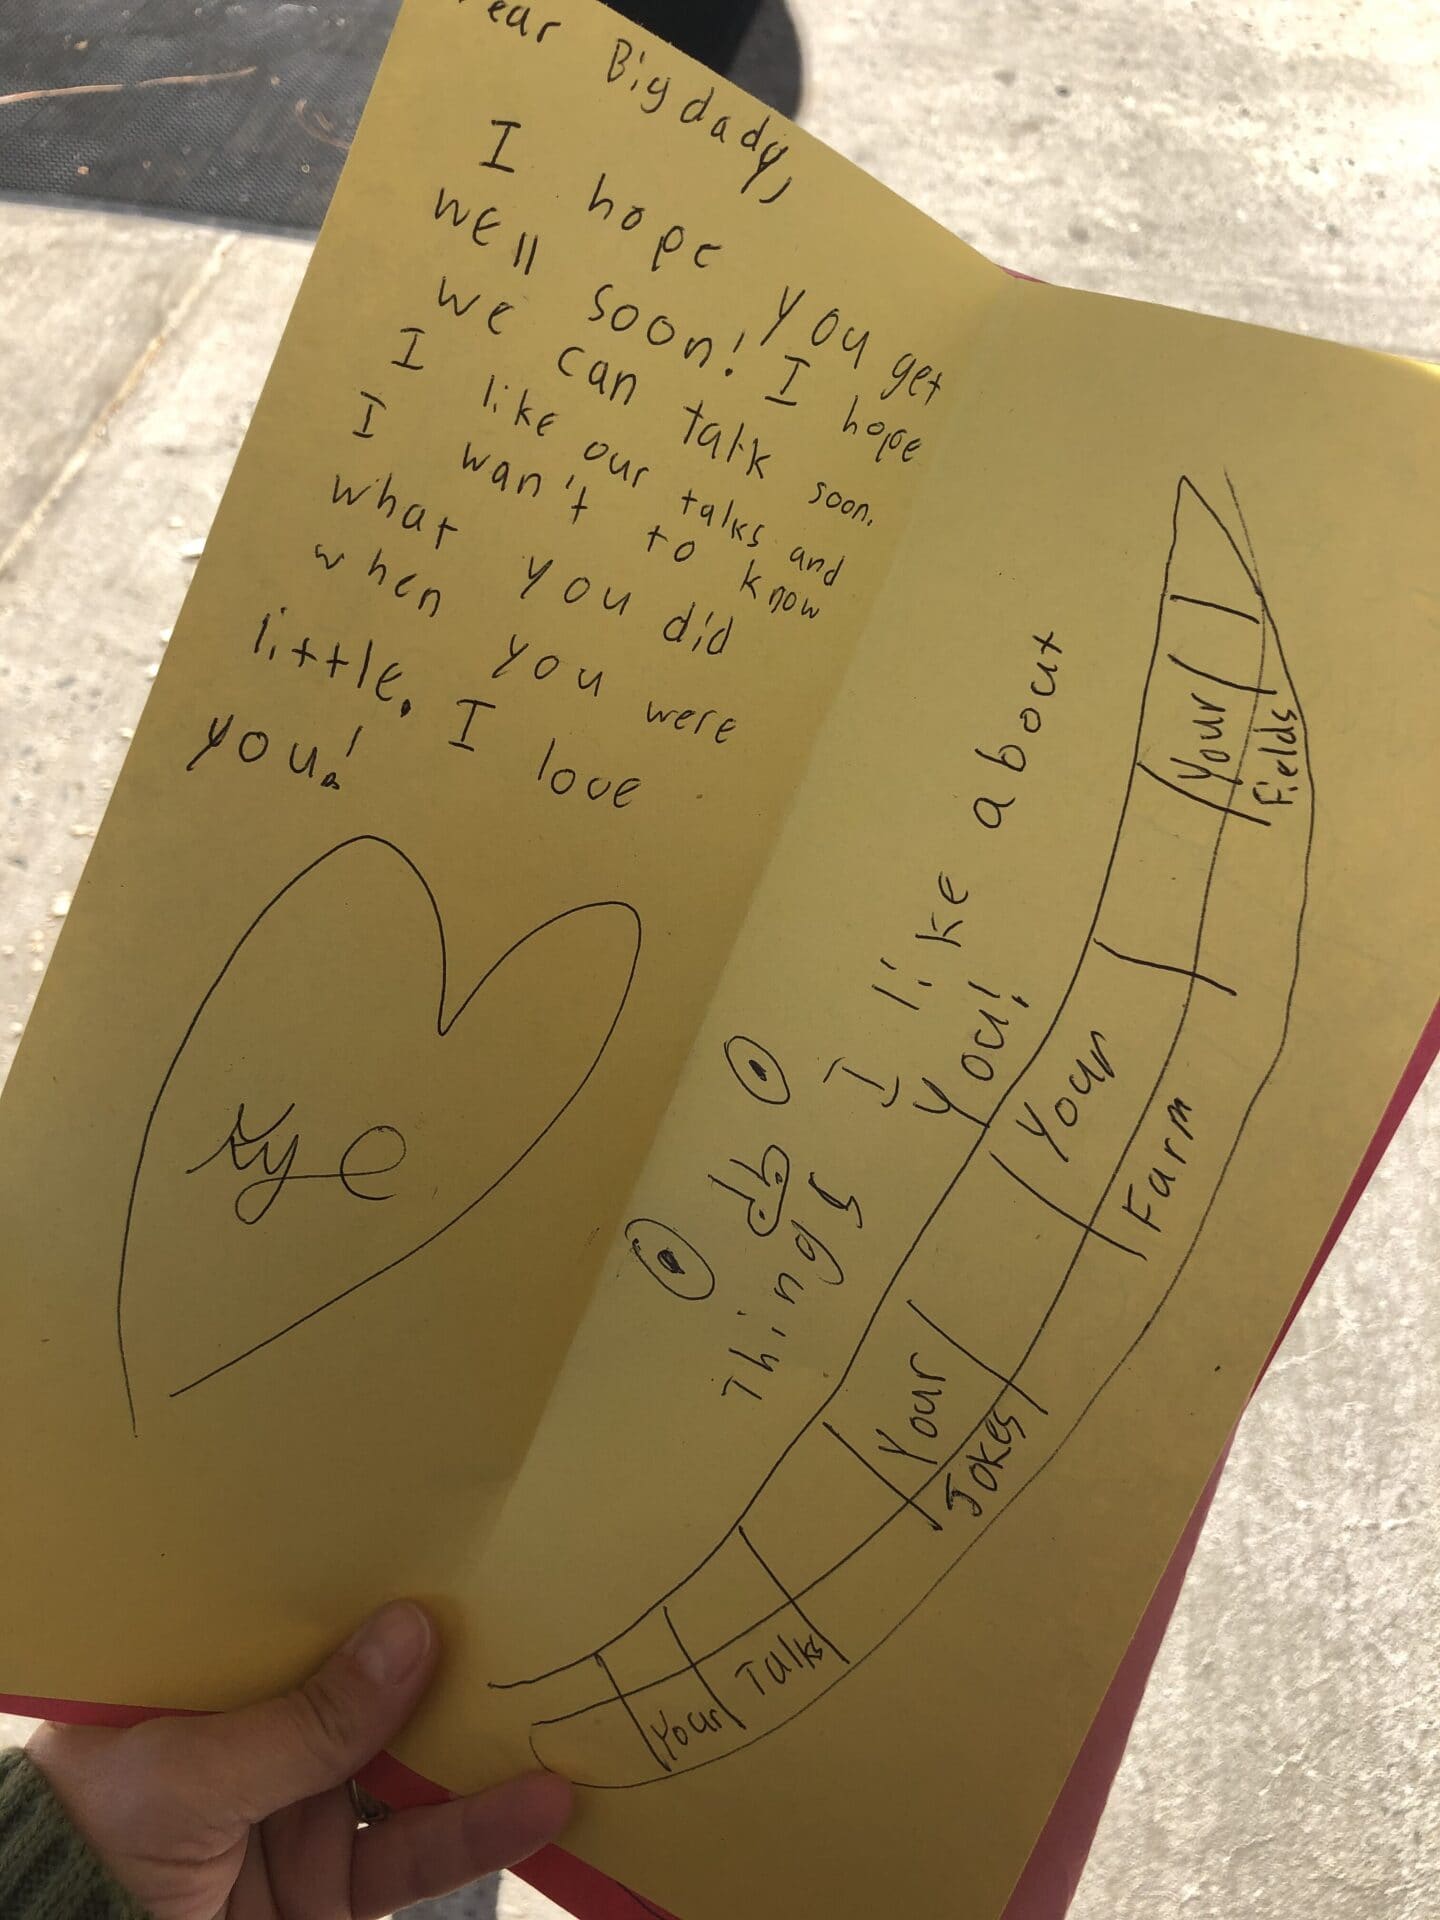 ear Bigdady,
I hope you get
well soon! I hope
we can talk soon.
I like our talks and
I wan't to know
what you did
when you were
little. I love
you!
Kyle
Things I like about
You!
Your Talks
Your Jokes
Your Farm
Your Fields